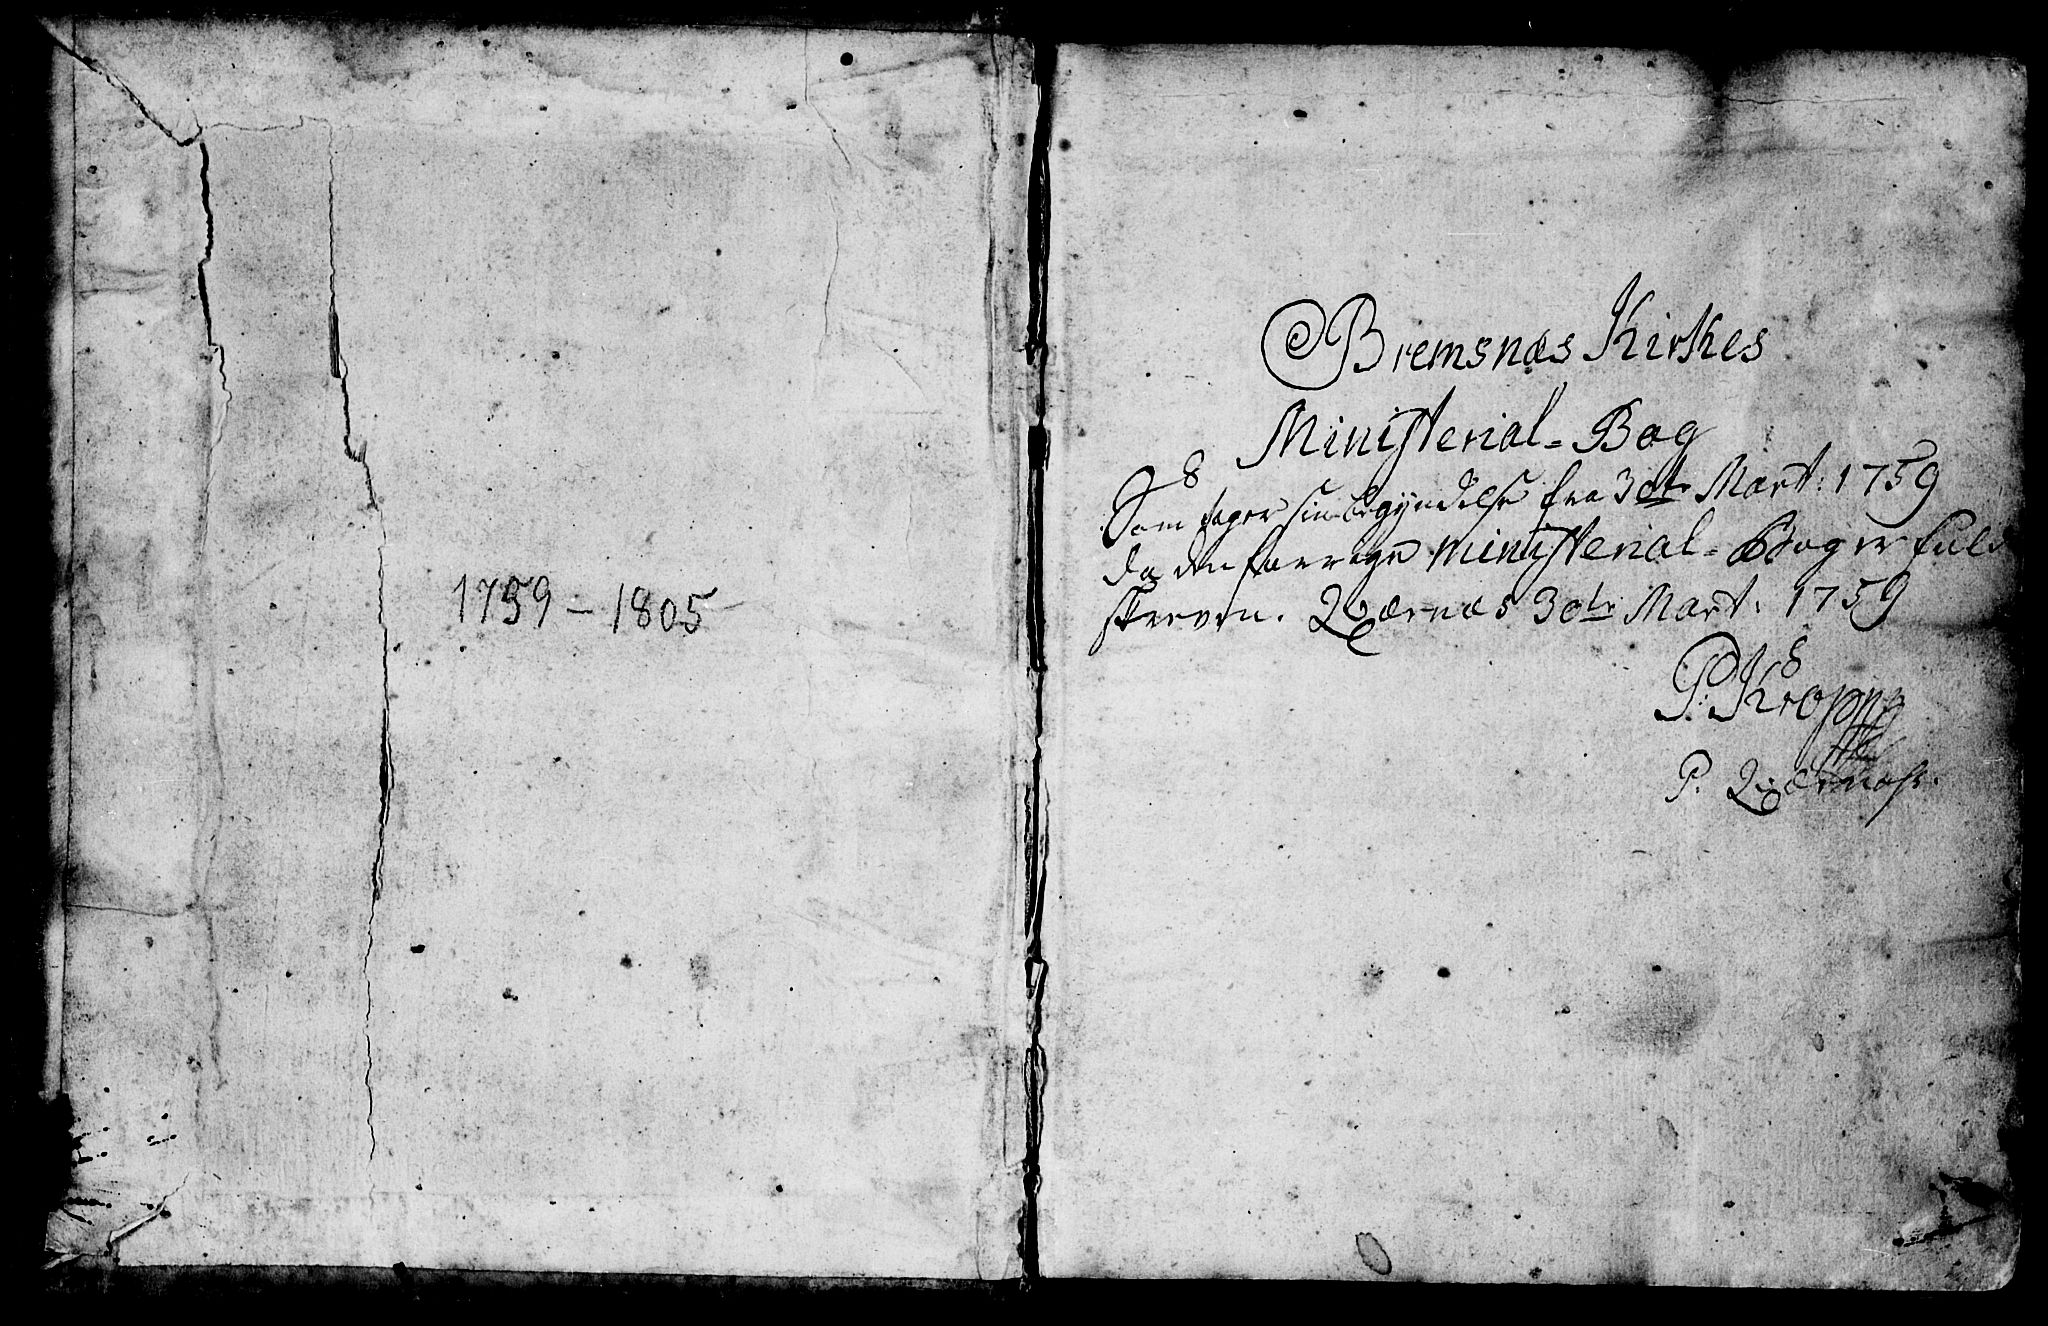 1759 – 1805
Bremsnæs Kirkes
Ministerial-Bog
Som tager sin begyndelse fra 30te Mart: 1759
da den forrige Ministerial-Bog er fuld
skreven. Qværnæs 30te Mart: 1759
P. Kropp
P. Qværnæs.